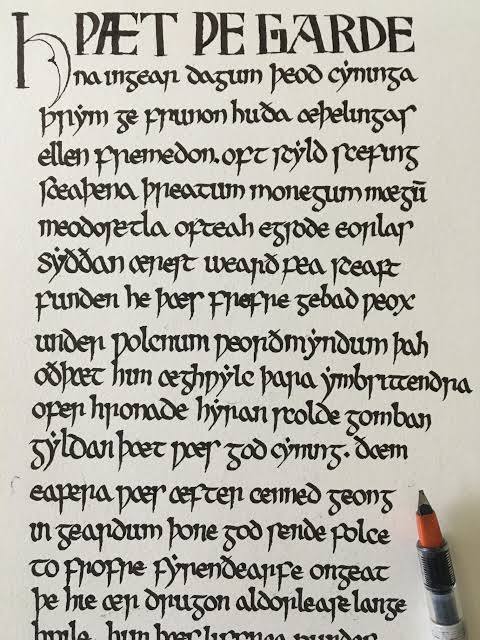 HǷÆT ǷE GARDE
na ingear dagum þeod cẏninga
þrẏm ge frunon huða æþelingas
ellen fremedon. oft scẏld scefing
sceaþena þreatum monegum mægū
meodosetla ofteah egsode eorlas
sẏððan ærest wearð fea sceaft
funden he þæs frofre gebad ƿeox
under ƿolcnum ƿeorðmẏndum þah
oðþæt him æghƿẏlc þara ẏmbsittendra
ofer hronade hẏran scolde gomban
gẏldan þæt ƿæs god cẏning. ðæm
eafera ƿæs æfter cenned geong
in geardum þone god sende folce
to frofre fẏrendearfe ongeat
þe hie ær drugon aldorlease lange
him þæs